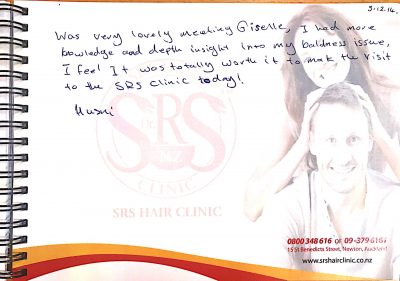 3.12.14.
Was very lovely meeting Giselle, I had more
knowledge and depth insight into my baldness issue,
I feel It was totally worth it to mak the visit
to the SRS Clinic today!
Husni
Dr.
SRS
NZ
CLINIC
SRS HAIR CLINIC
0800 348 616 or 09-379 6187
15 St Benedicts Street, Newton, Auckland
www.srshairclinic.co.nz